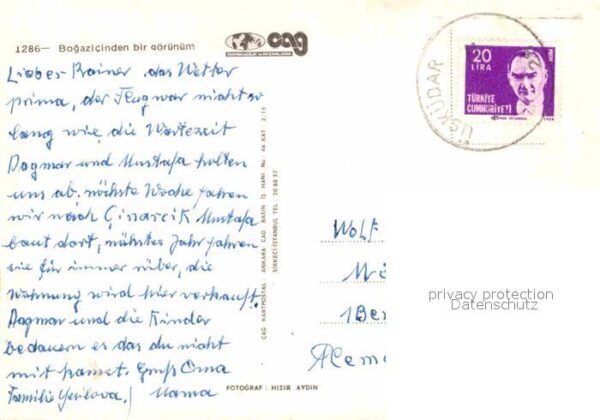 1286— Boğaziçinden bir görünüm
cag
Lieber Rainer, das Wetter
prima, der Flug war nicht so
lang wie die Wartezeit
Dagmar und Mustafa holten
uns ab. nächste Woche fahren
wir nach Çinarcik Mustafa
baut dort, nächstes Jahr fahren
sie für immer rüber, die
Wohnung wird hier verkauft.
Dagmar und die Kinder
bedauern es das du nicht
mit kamst. Gruß Oma
Familie Yesilova. Mama
ÇAĞ KARTPOSTAL ANKARA CAD. BASIN İŞ HANI No. 46 KAT 2/13
SİRKECİ-İSTANBUL TEL 20 88 57
FOTOĞRAF : HIZIR AYDIN
ÜSKÜDAR
20
LİRA
TÜRKİYE
CUMHURİYETİ
Wolf
1 Ber
Alema
privacy protection
Datenschutz